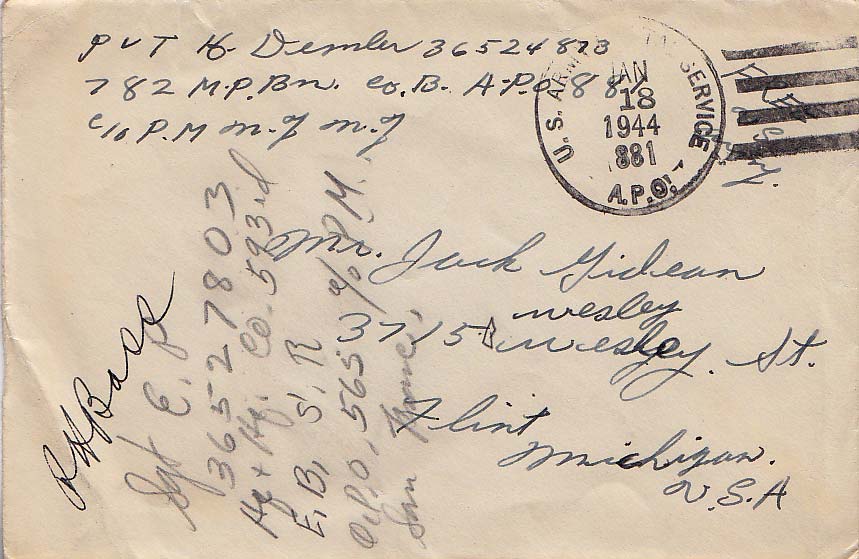 Pvt H. Demler 36524873
782 M.P.Bn. Co.B. A.P.O. 881
c/o P.M n.y n.y
U.S. ARMY SERVICE
JAN
18
1944
881
A.P.O.
Free
Mr. Jack Gidean
wesley
3715 wesley. St.
Flint
Michigan.
U.S.A
RHBass
Sgt E.
36527803
Hq & Hq. Co. 593rd
E.B, S, R
A.P.O, 565 % P.M.
San